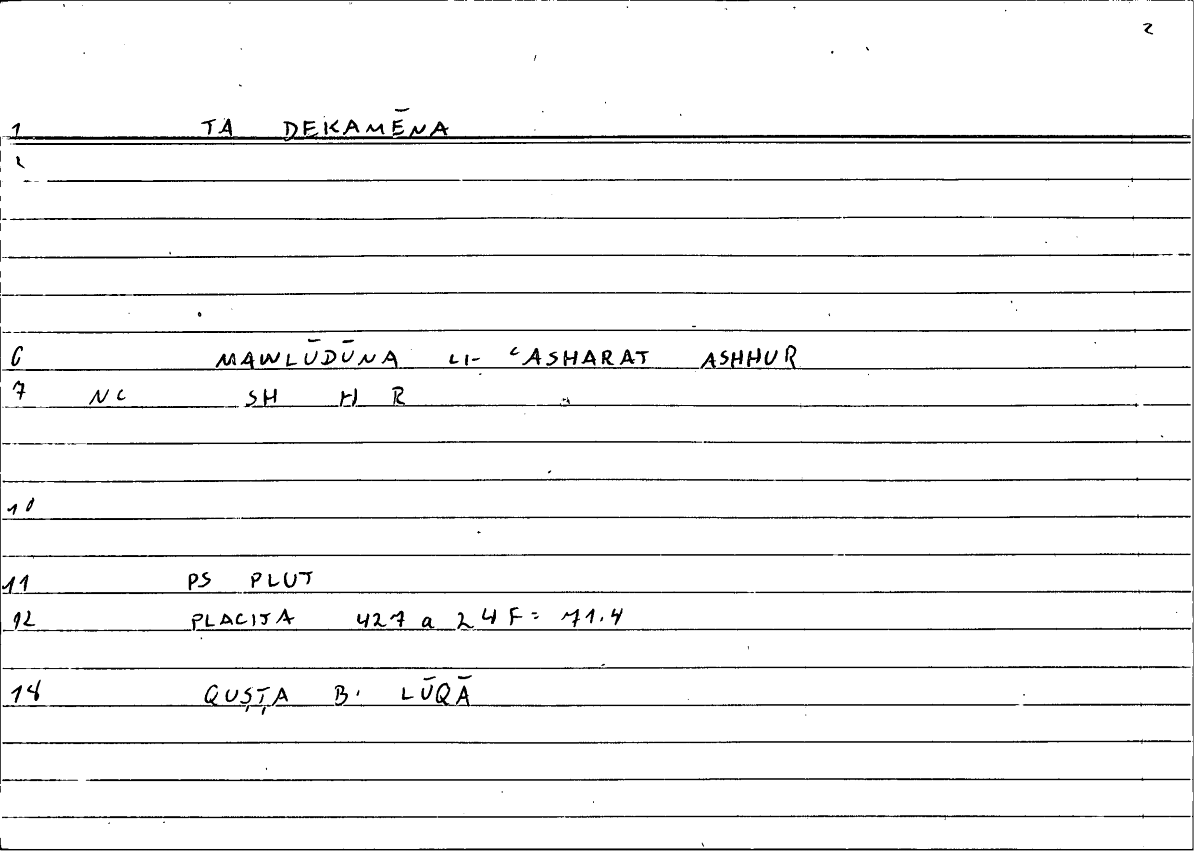 2
1 TA DEKAMĒNA
2
6 MAWLŪDŪNA LI- ʿASHARAT ASHHUR
7 NC SH H R
10
11 PS PLUT
12 PLACITA 427 a 24 F = 71.4
14 QUṢṬA B. LŪQĀ